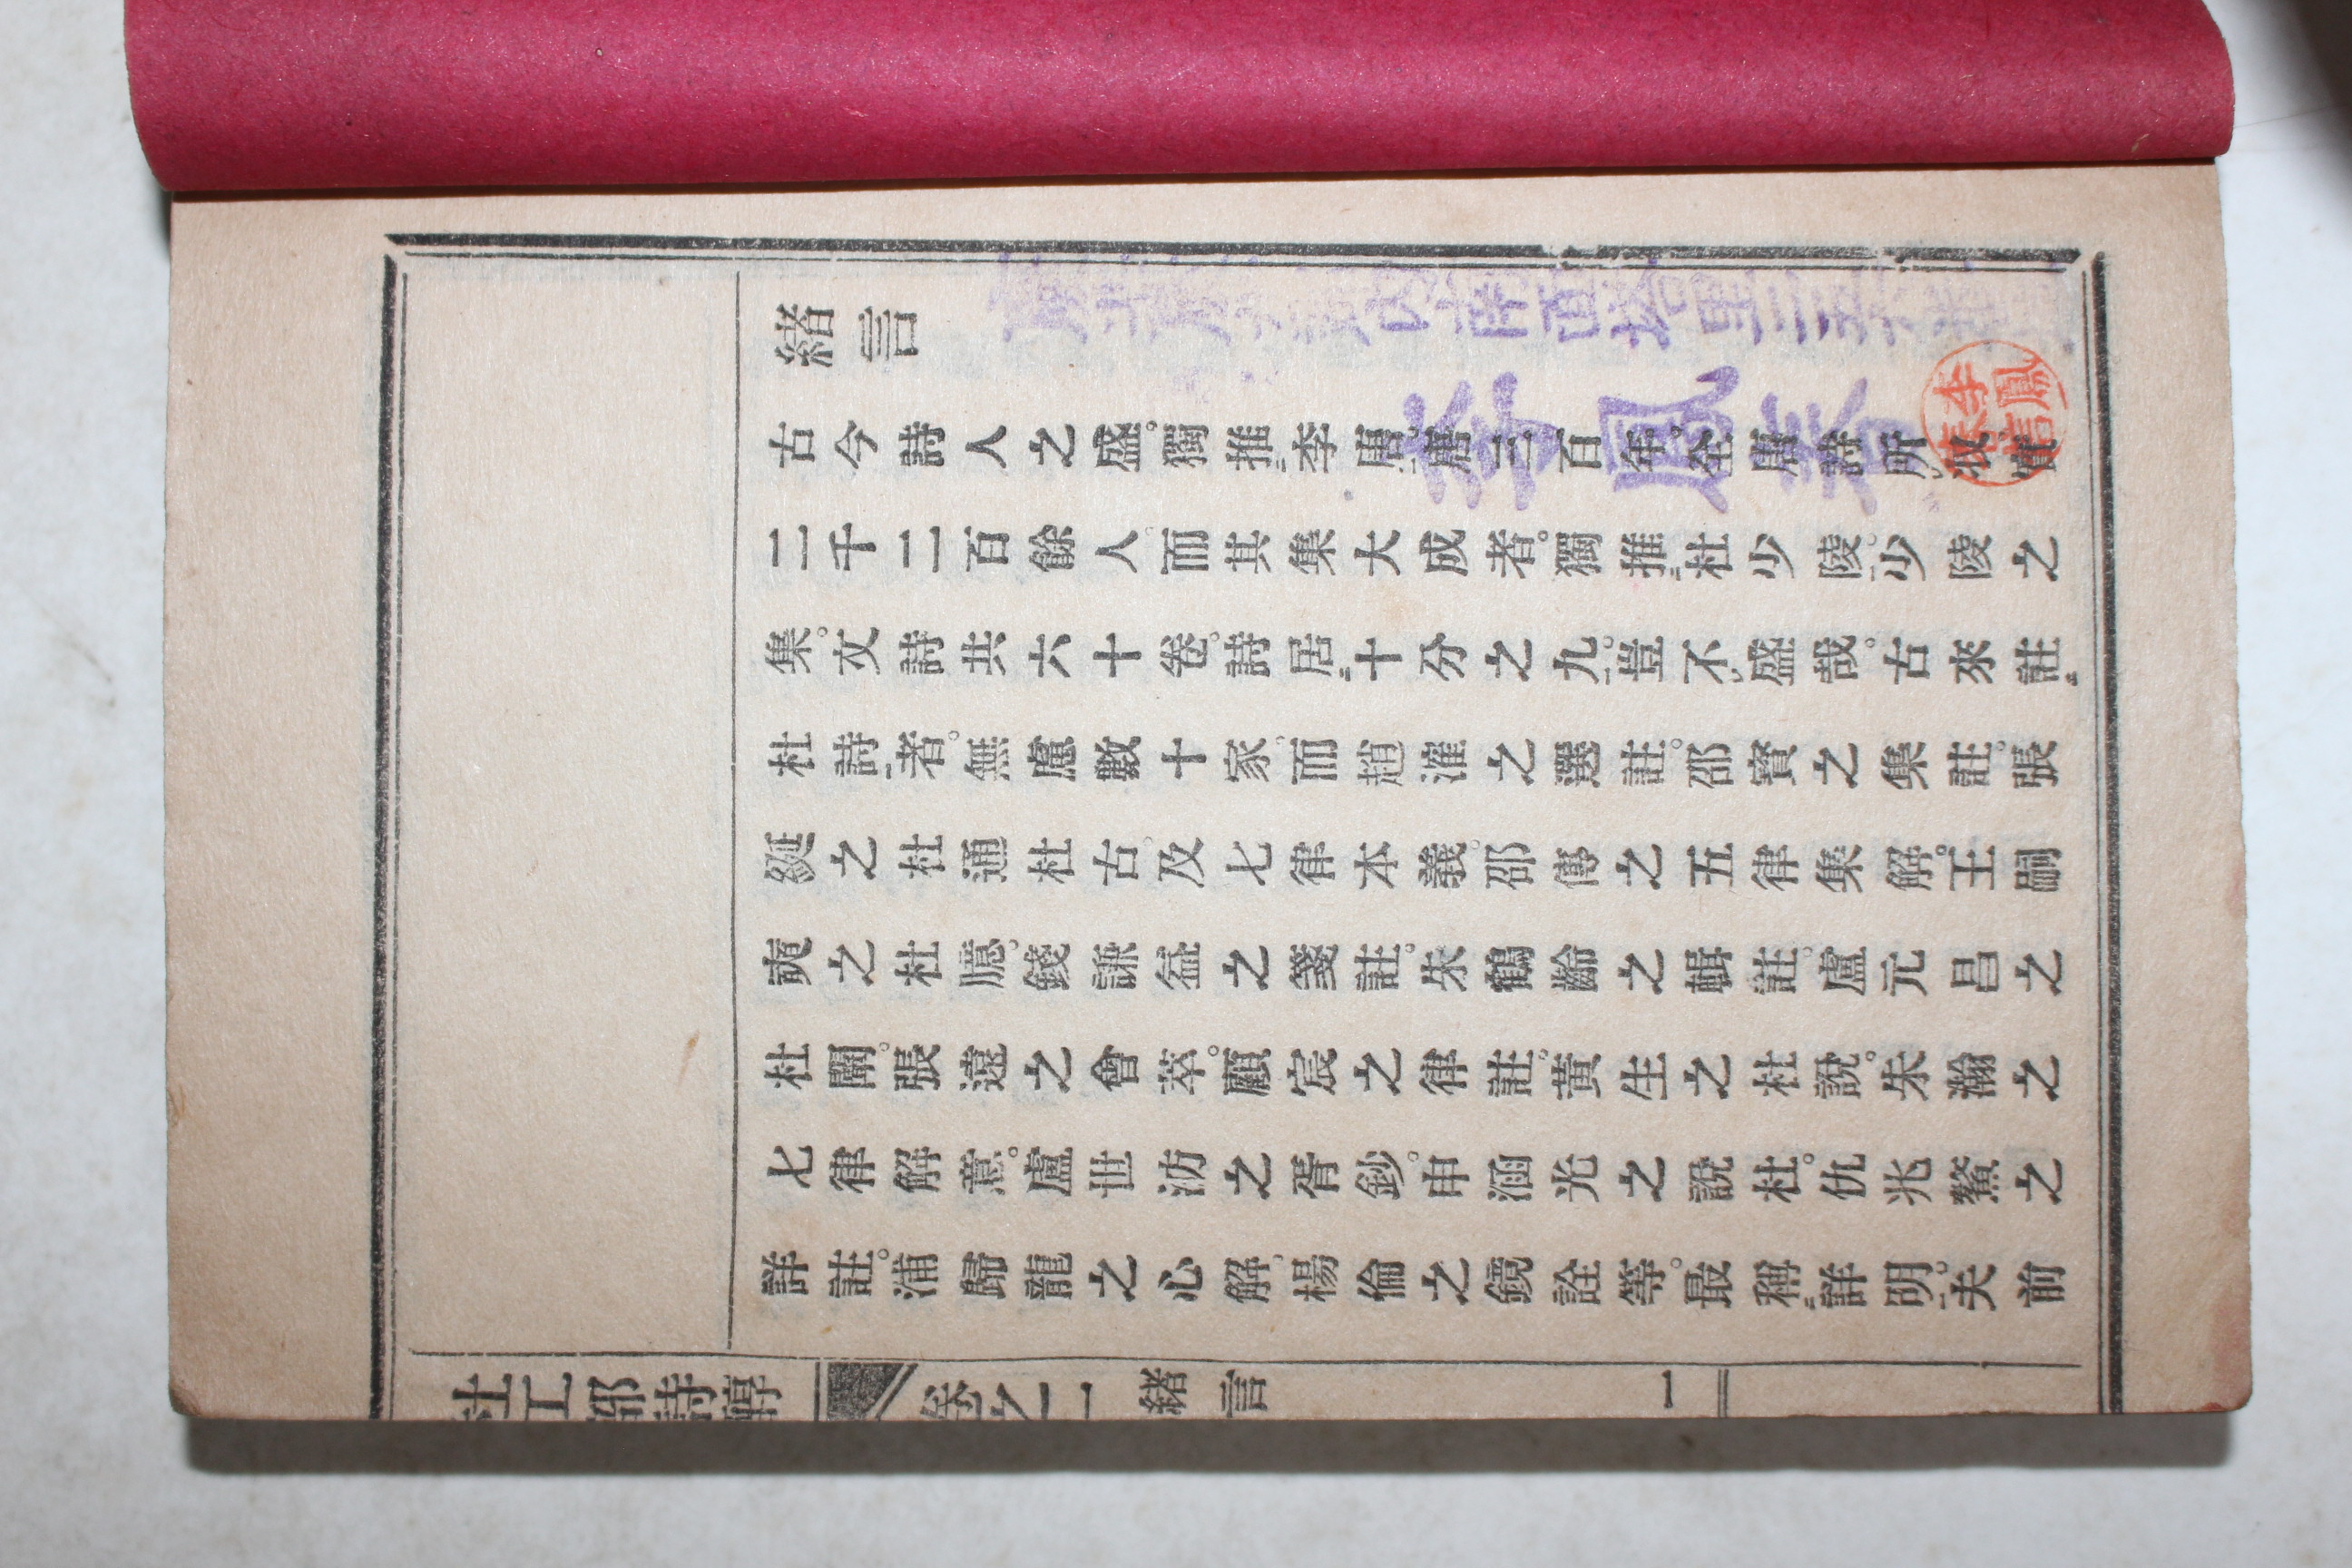 緒言
古今詩人之盛。獨推李唐。唐三百年。全唐詩所收實
二千二百餘人。而其集大成者。獨推杜少陵。少陵之
集。文詩共六十卷。詩居十分之九。豈不盛哉。古來註
杜詩者。無慮數十家。而趙滻之選註。邵寶之集註。張
綖之杜通杜古及七律本義。邵傅之五律集解。王嗣
奭之杜臆。錢謙益之箋註。朱鶴齡之輯註。盧元昌之
杜闡。張遠之會萃。顧宸之律註。黃生之杜說。朱瀚之
七律解意。盧世㴶之胥鈔。申涵光之說杜。仇兆鰲之
詳註。浦歸龍之心解。楊倫之鏡詮等。最稱詳明。夫前
杜工部詩醇
卷之一
緒言
一
李鳳春